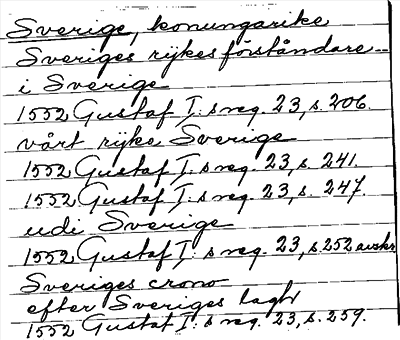 Sverige, konungarike
Sveriges rijkes förståndare --
i Sverige
1552 Gustaf I:s reg. 23, s. 206.
vårt rijke Sverige
1552 Gustaf I:s reg. 23, s. 241.
1552 Gustaf I:s reg. 23, s. 247.
udi Sverige
1552 Gustaf I:s reg. 23, s. 252 avskr
Sveriges crono
efter Sveriges lagh
1552 Gustaf I:s reg. 23, s. 259.